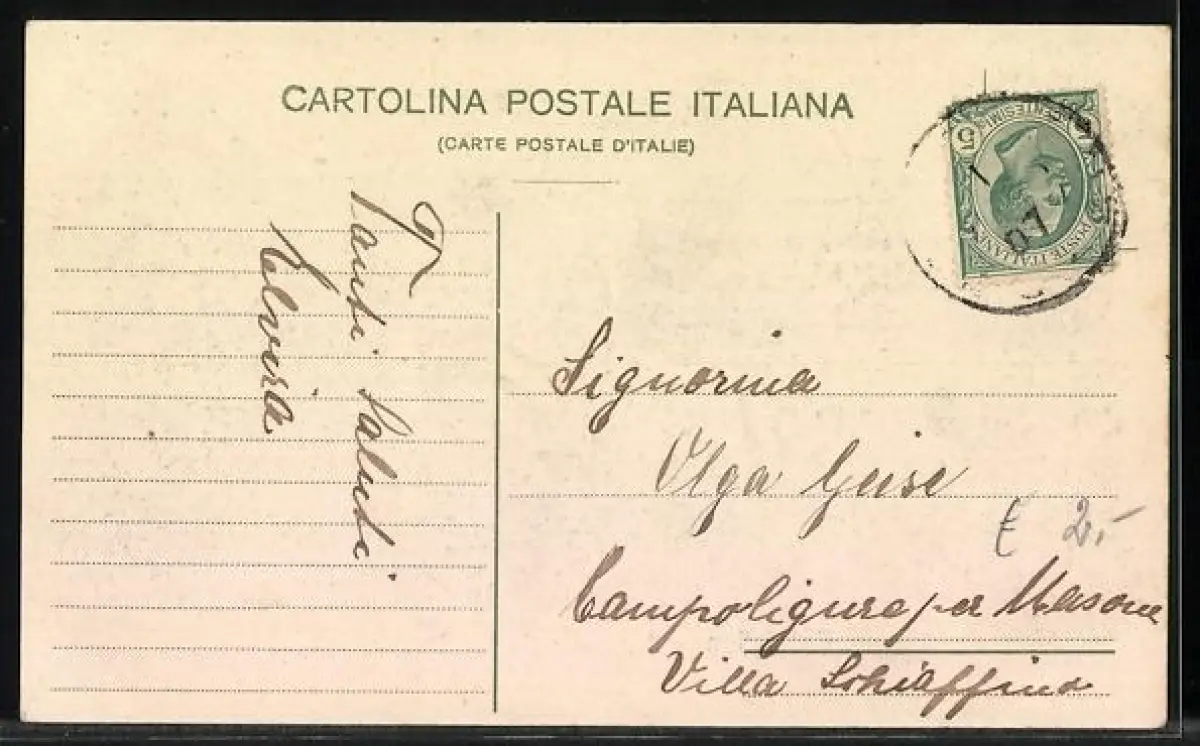 CARTOLINA POSTALE ITALIANA
(CARTE POSTALE D'ITALIE)
5
CENTESIMI
POSTE ITALIANE
07
Tanti saluti
Signorina
Olga
Campoligure per Masone
Villa Schiaffino
€ 2,-